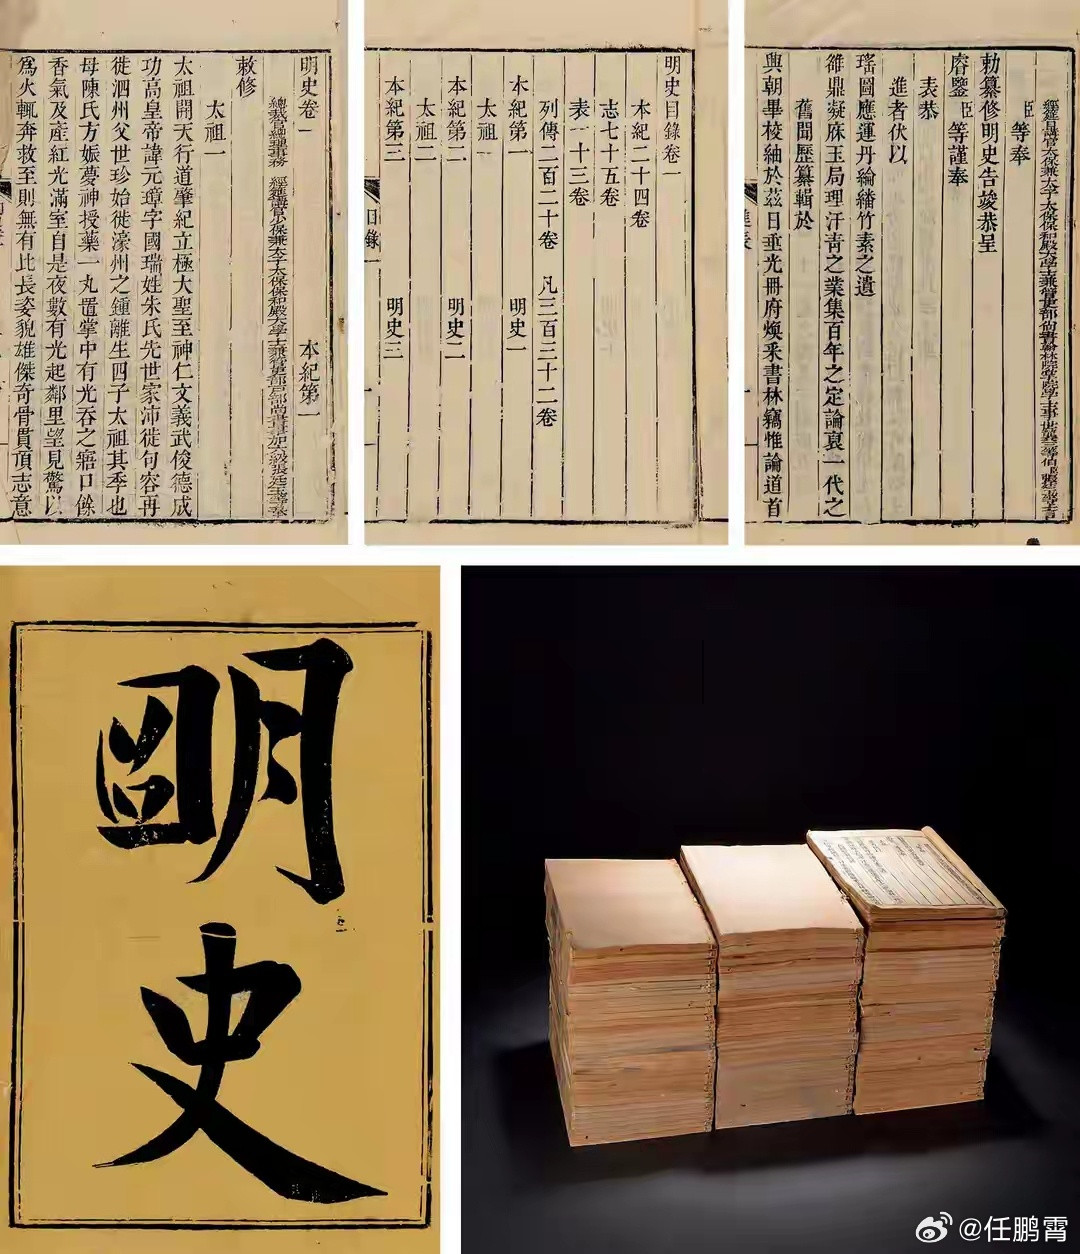 經筵日講官太保兼太子太保保和殿大學士兼管吏部尚書翰林院掌院學士事世襲三等伯
臣等奉
勅纂修明史告竣恭呈
睿鑒臣等謹奉
表恭
進者伏以
瑤圖應運丹綸繙竹素之遺
雒鼎凝庥玉局理汗青之業集百年之定論裒一代之
舊聞歷纂輯於
興朝畢校紬於茲日垂光冊府煥釆書林竊惟論道首
進表
明史目錄卷一
本紀二十四卷
志七十五卷
表一十三卷
列傳二百二十卷 凡三百三十二卷
本紀第一 明史一
太祖一
本紀第二 明史二
太祖二
本紀第三 明史三
目錄一
明史卷一 本紀第一
總裁官總理事務 經筵講官少保兼太子太保保和殿大學士兼管吏部戶部尚書事加六級張廷玉等奉
敕修
太祖一
太祖開天行道肇紀立極大聖至神仁文義武俊德成
功高皇帝諱元璋字國瑞姓朱氏先世家沛徙句容再
徙泗州父世珍始徙濠州之鍾離生四子太祖其季也
母陳氏方娠夢神授藥一丸置掌中有光吞之寤口餘
香氣及產紅光滿室自是夜數有光起鄰里望見驚以
為火輒奔救至則無有比長姿貌雄傑奇骨貫頂志意
明史
@任鹏霄